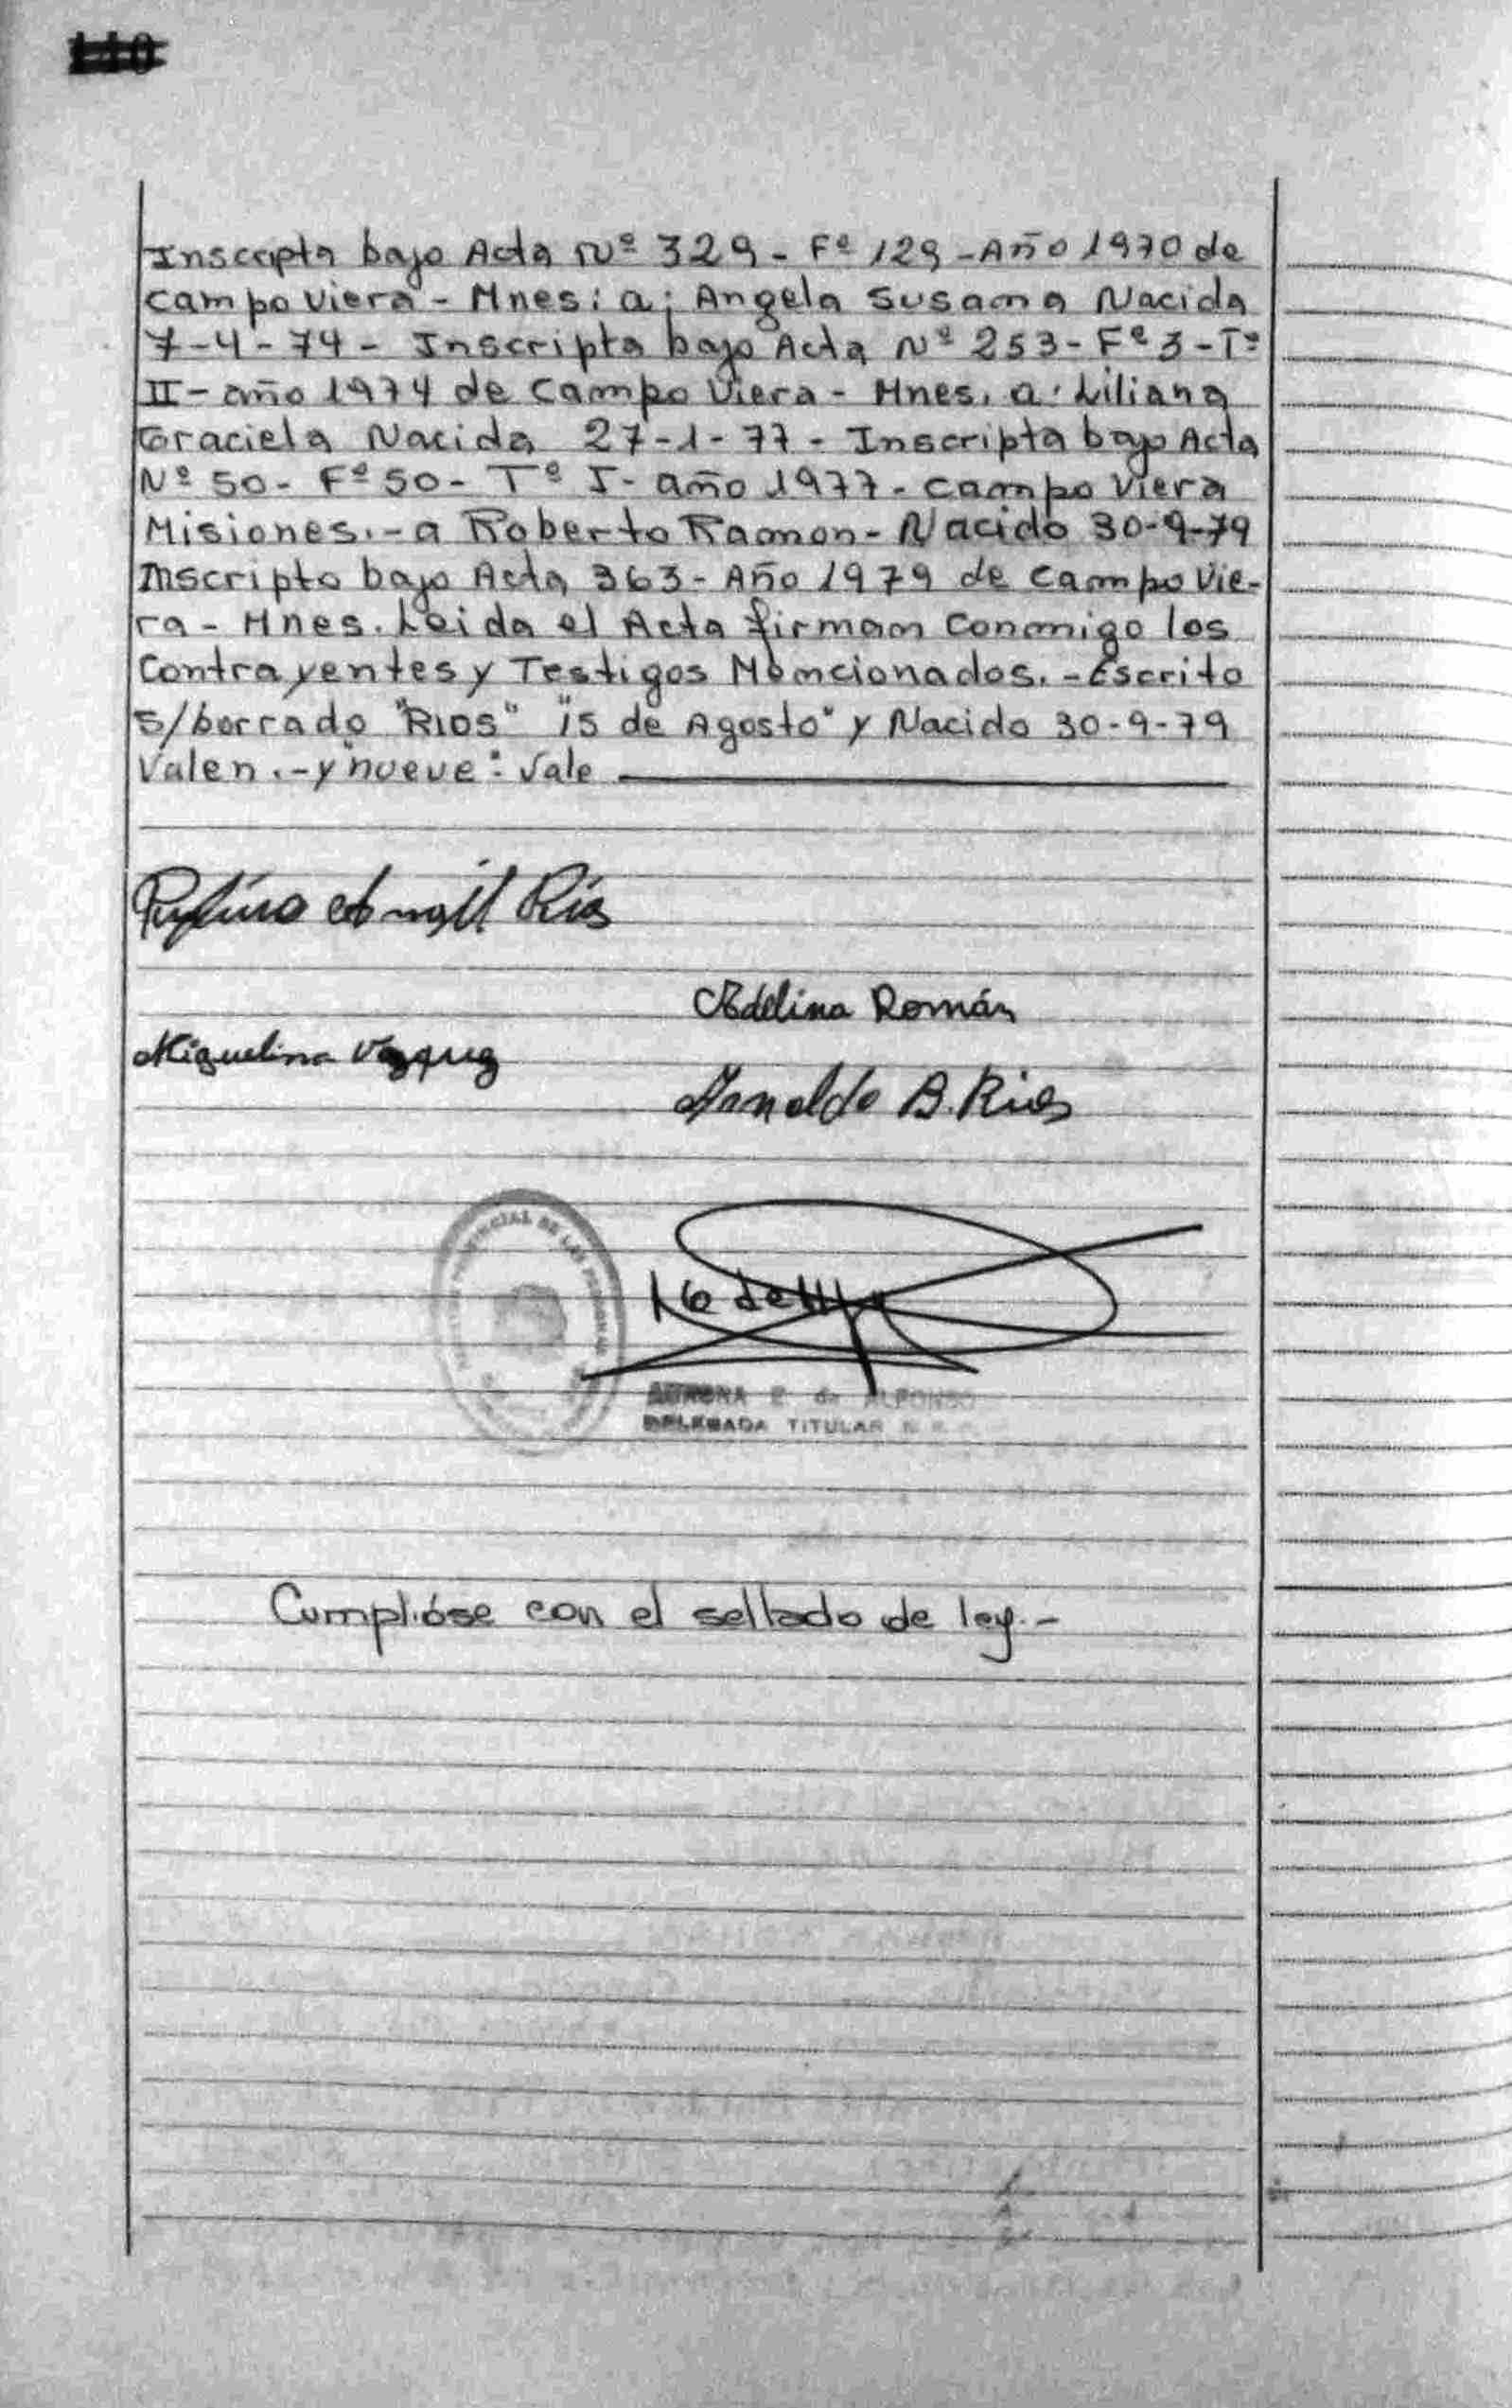 110
Inscripta bajo Acta Nº 329 - Fº 129 - Año 1970 de
campo viera - Mnes: a: Angela Susana Nacida
7-4-74 - Inscripta bajo Acta Nº 253 - Fº 3 - Tº
II - año 1974 de Campo Viera - Mnes. a: Liliana
Graciela Nacida 27-1-77 - Inscripta bajo Acta
Nº 50 - Fº 50 - Tº I - año 1977 - campo Viera
Misiones. - a Roberto Ramon - Nacido 30-9-79
Inscripto bajo Acta 363 - Año 1979 de Campo Vie-
ra - Mnes. Leida el Acta firman Conmigo los
Contrayentes y Testigos Mencionados. - Escrito
S/borrado "Rios" "15 de Agosto" y Nacido 30-9-79
Valen. - y "nueve": Vale
Rufino Ríos
Adelina Román
Miguelina Vazquez
Arnaldo B. Rios
PROVINCIAL DE LAS PERSONAS
AURORA E. de ALFONSO
DELEGADA TITULAR
Cumplióse con el sellado de ley. -